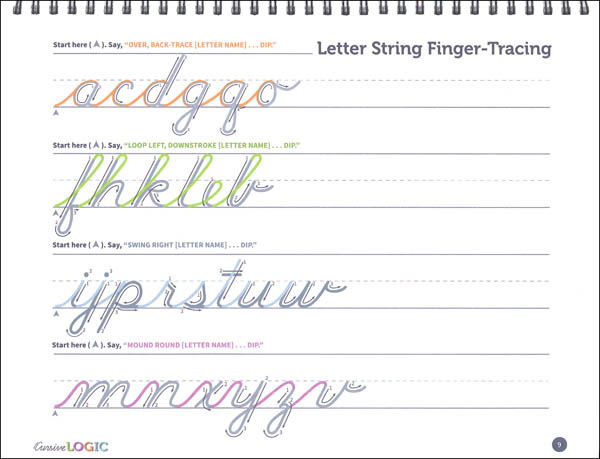 Start here ( ). Say, "OVER, BACK-TRACE [LETTER NAME] . . . DIP."
Letter String Finger-Tracing
acdgqo
Start here ( ). Say, "LOOP LEFT, DOWNSTROKE [LETTER NAME] . . . DIP."
fhkleb
Start here ( ). Say, "SWING RIGHT [LETTER NAME] . . . DIP."
ijprstuw
Start here ( ). Say, "MOUND ROUND [LETTER NAME] . . . DIP."
mnxyzv
CursiveLOGIC
9